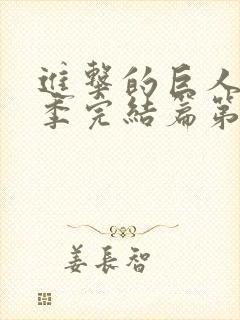 進撃的巨人
季完結篇第
姜長智